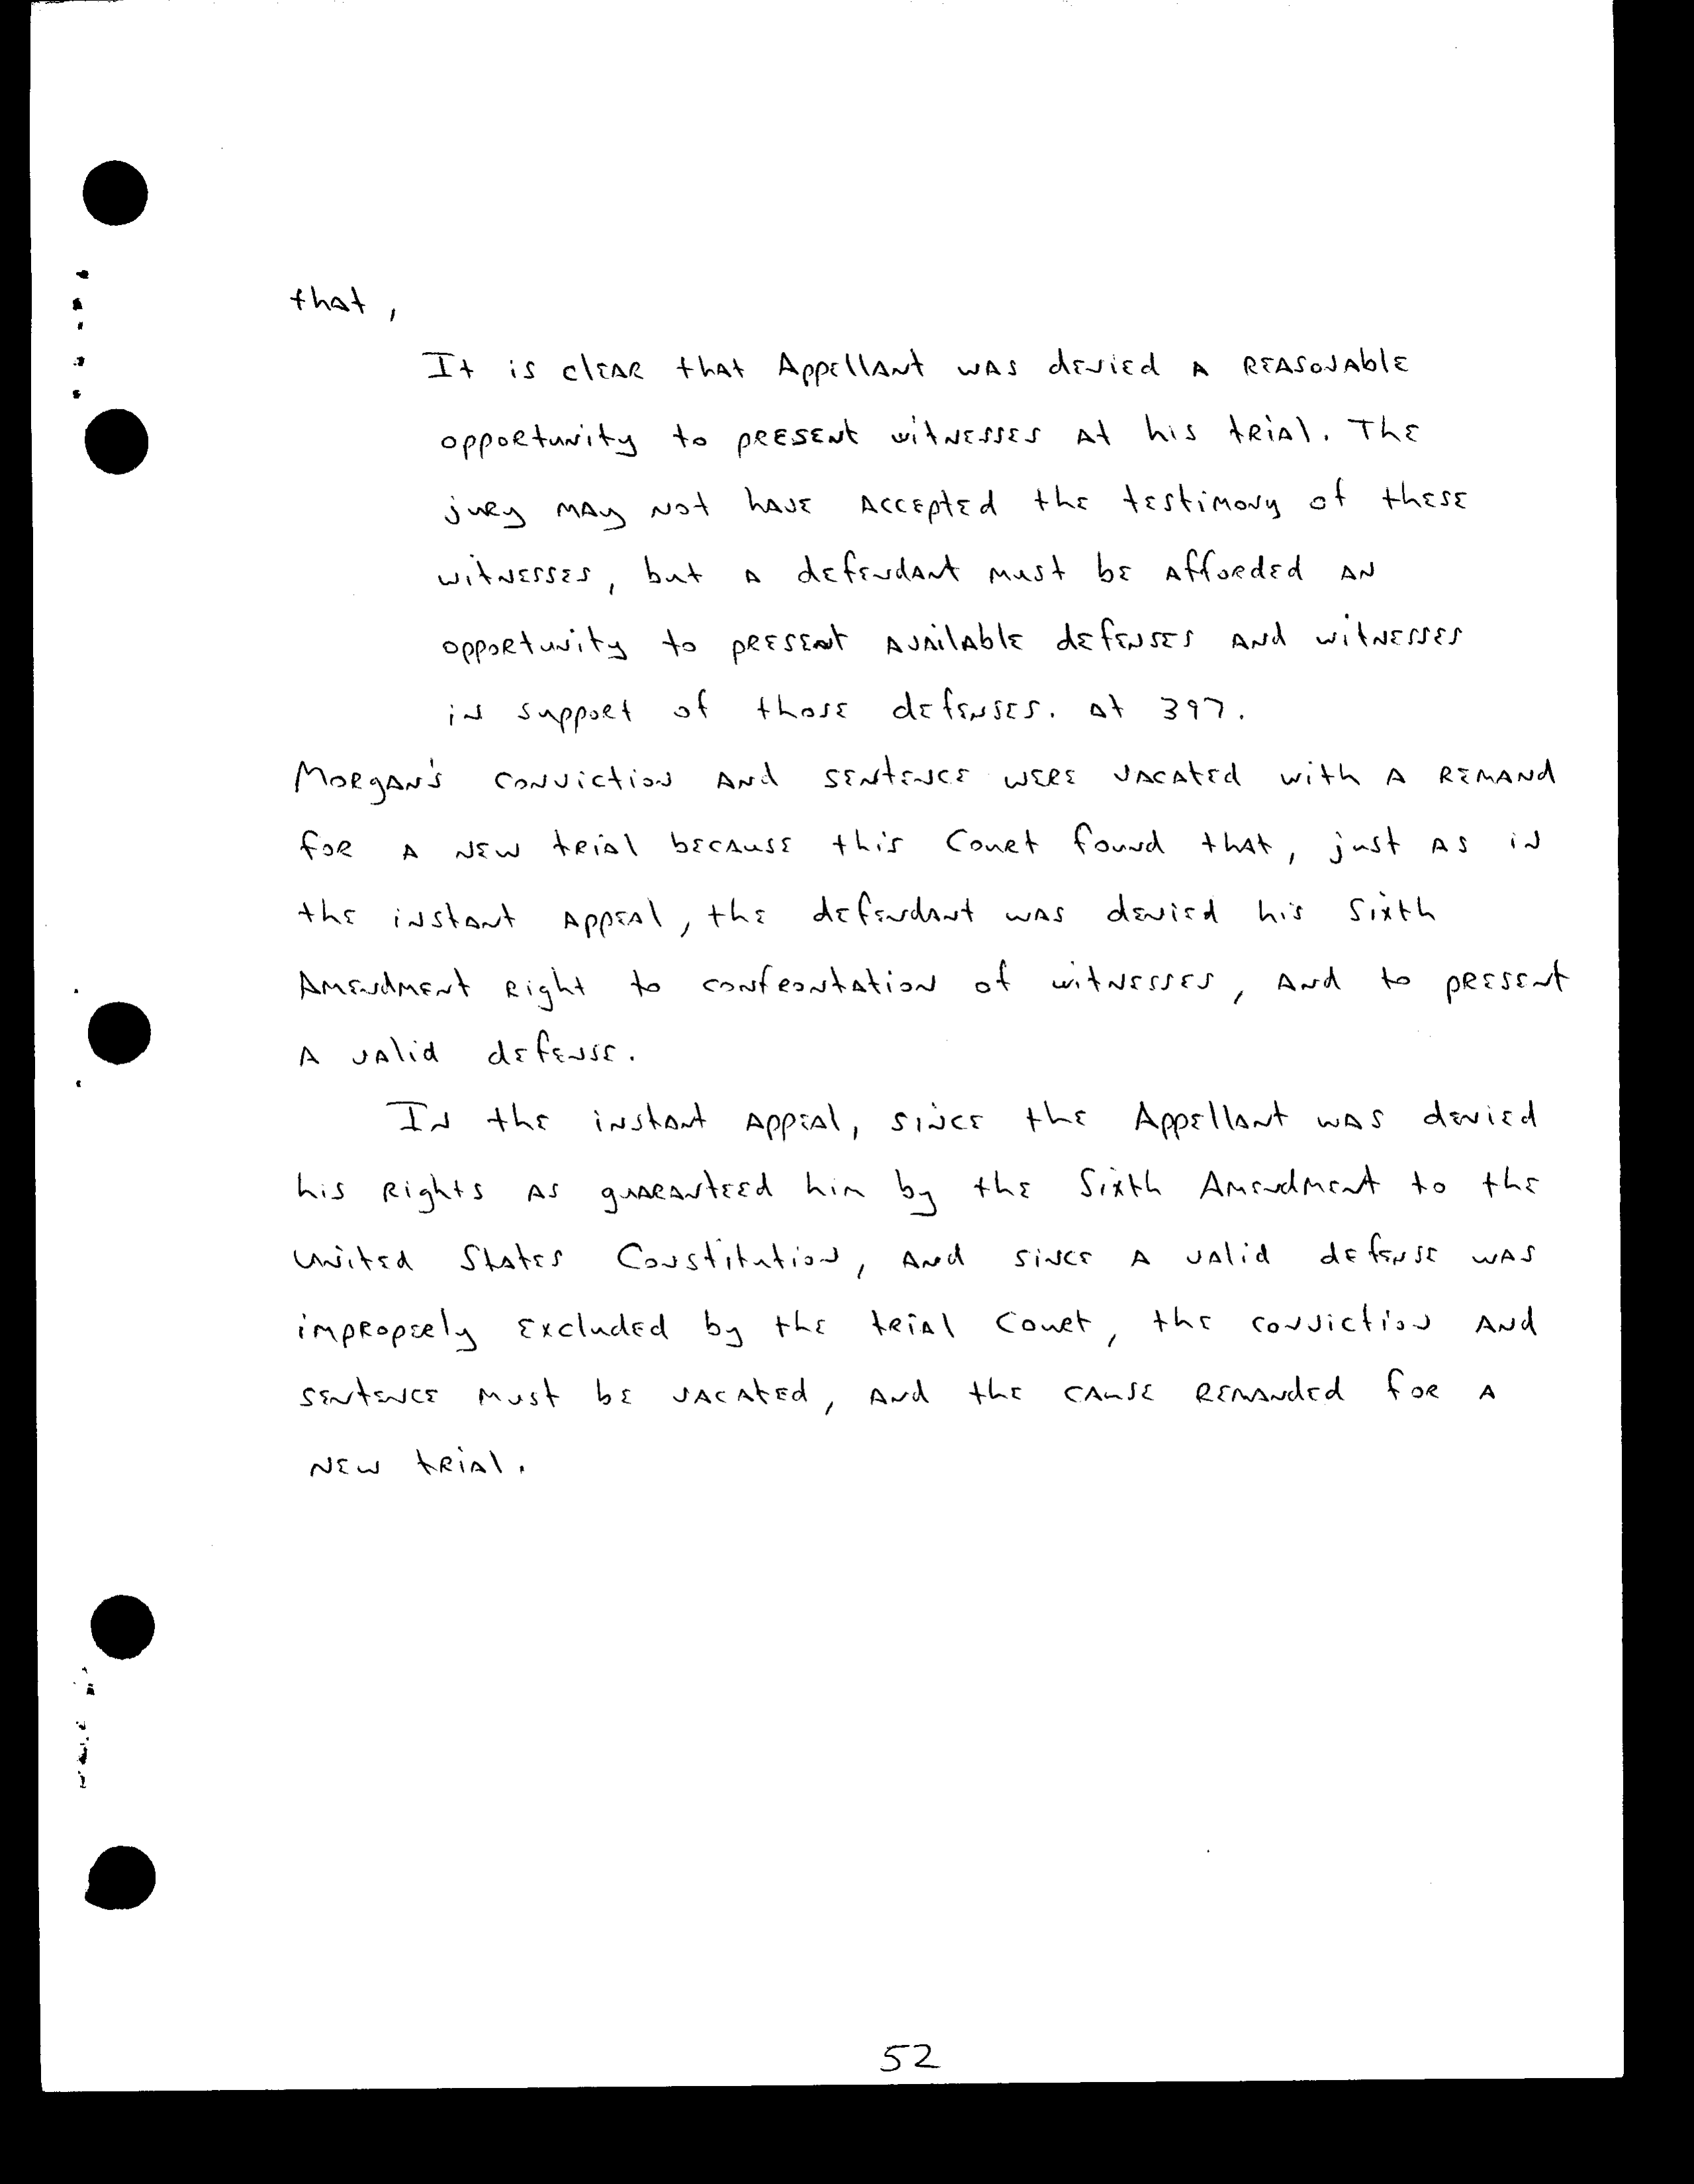 that,
It is clear that Appellant was denied a reasonable
opportunity to present witnesses at his trial. The
jury may not have accepted the testimony of these
witnesses, but a defendant must be afforded an
opportunity to present available defenses and witnesses
in support of those defenses. at 397.
Morgan's conviction and sentence were vacated with a remand
for a new trial because this Court found that, just as in
the instant appeal, the defendant was denied his Sixth
Amendment right to confrontation of witnesses, and to present
a valid defense.
In the instant appeal, since the Appellant was denied
his rights as guaranteed him by the Sixth Amendment to the
United States Constitution, and since a valid defense was
improperly excluded by the trial Court, the conviction and
sentence must be vacated, and the cause remanded for a
new trial.
52